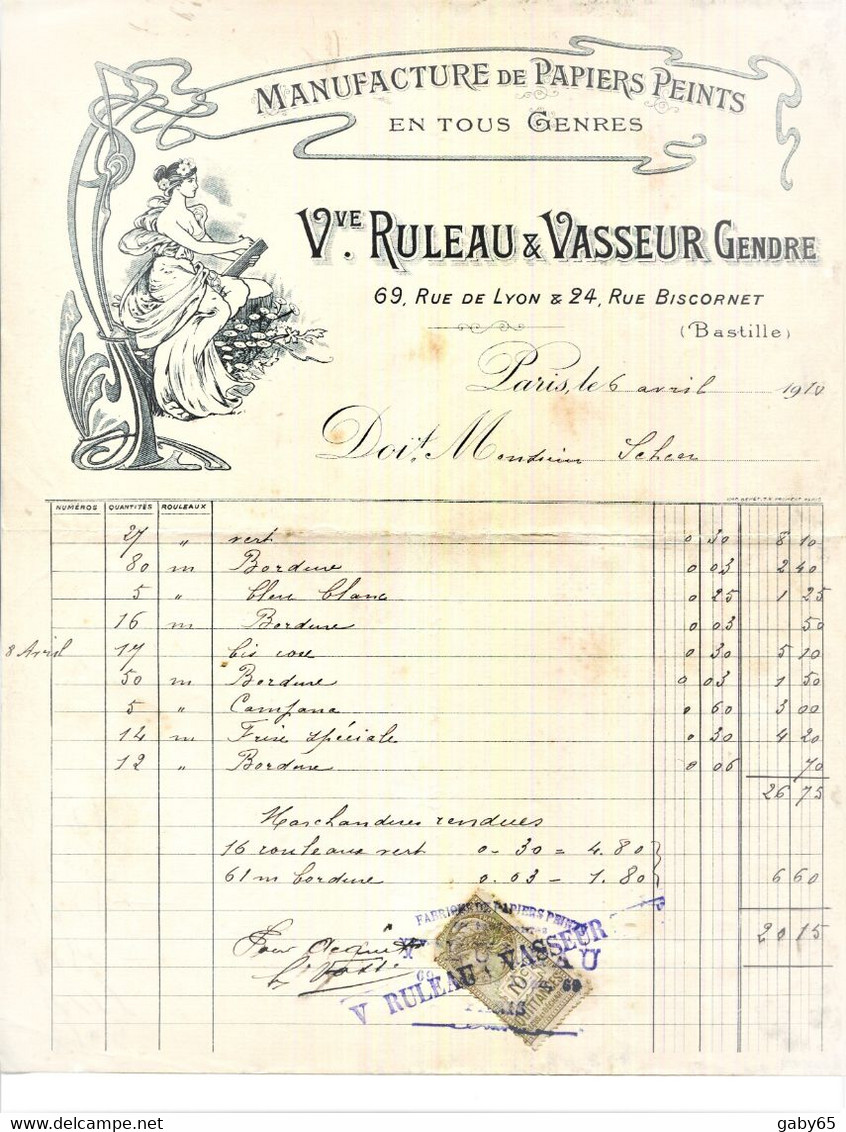 MANUFACTURE DE PAPIERS PEINTS
EN TOUS GENRES
VVE. RULEAU & VASSEUR GENDRE
69, RUE DE LYON & 24, RUE BISCORNET
(Bastille)
Paris, le 6 avril 1910
Doit Monsieur Scheer
NUMÉROS QUANTITÉS ROULEAUX
27 " vert 0 30 8 10
80 m Bordure 0 03 2 40
5 " bleu blanc 0 25 1 25
16 m Bordure 0 03 50
8 Avril 17 " bis rose 0 30 5 10
50 m Bordure 0 03 1 50
5 " Campana 0 60 3 00
14 m Frise spéciale 0 30 4 20
12 " Bordure 0 06 70
26 75
Marchandises rendues
16 rouleaux vert 0-30 = 4.80
61 m bordure 0.03 - 1.80 6 60
20 15
Pour Acquit
FABRIQUE DE PAPIERS PEINTS
V RULEAU & VASSEUR
69
PARIS
10c
QUITTANCES
gaby65